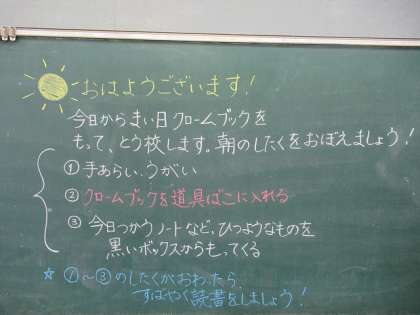 おはようございます!
今日からまい日クロームブックを
もって、とう校します。朝のしたくをおぼえましょう!
① 手あらい、うがい
② クロームブックを道具ばこに入れる
③ 今日つかうノートなど、ひつようなものを
黒いボックスからもってくる
☆ ①〜③のしたくがおわったら、
すばやく読書をしましょう!